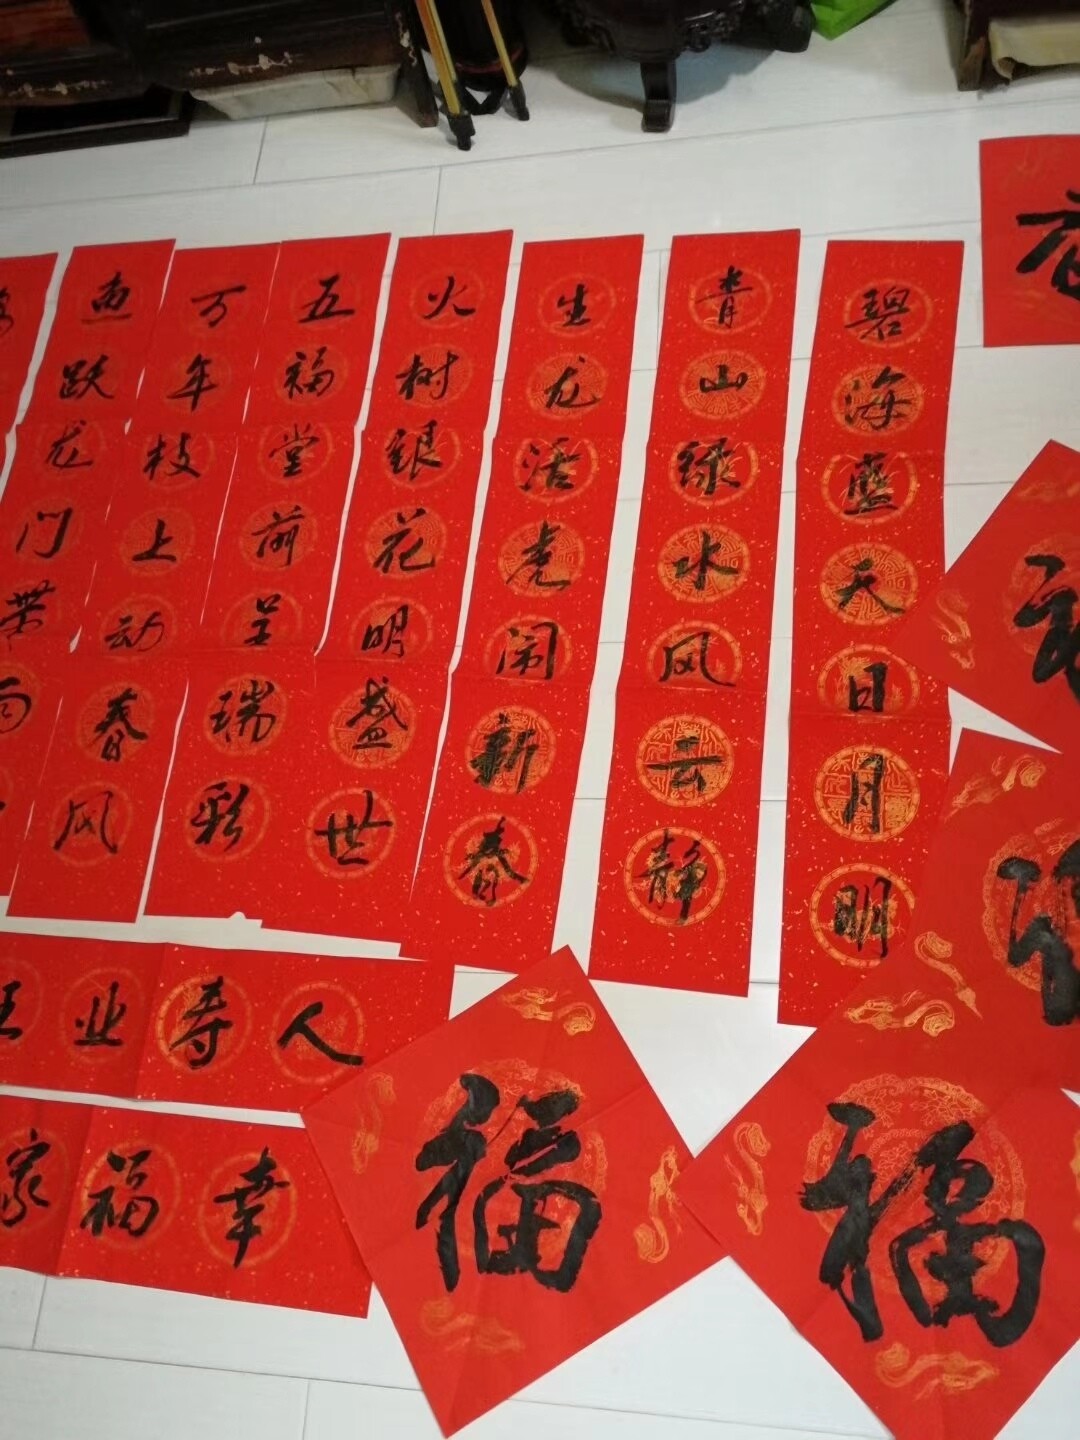 碧海蓝天日月明
青山绿水风云静
生龙活虎闹新春
火树银花明盛世
五福堂前呈瑞彩
万年枝上动春风
鱼跃龙门带雨
人寿业
幸福家
福
福